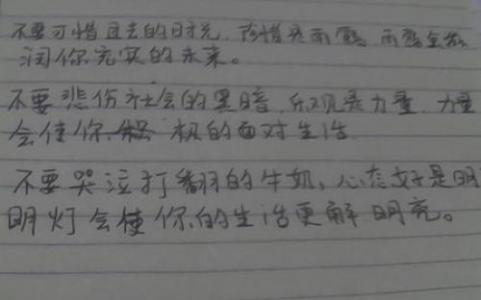 不要可惜过去的时光，珍惜是雨露，雨露会滋
润你充实的未来。
不要悲伤社会的黑暗，乐观是力量，力量
会使你 极的面对生活
不要哭泣打翻的牛奶，心态好是明
明灯会使你的生活更解明亮。